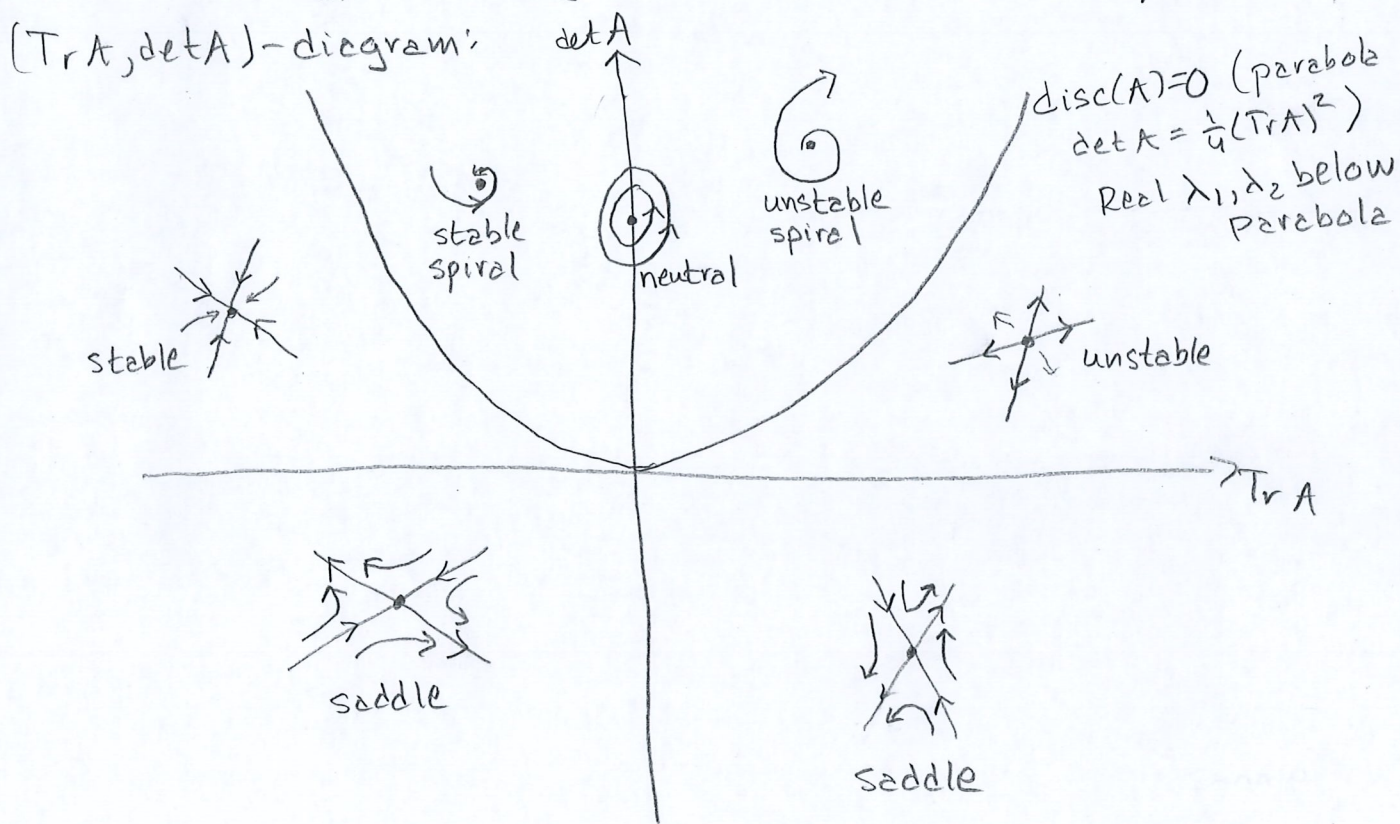 (TrA, detA)-diagram:
detA
disc(A)=0 (parabola
detA = 1/4(TrA)²)
Real λ₁,λ₂ below
Parabola
stable
spiral
neutral
unstable
spiral
stable
unstable
Tr A
saddle
saddle